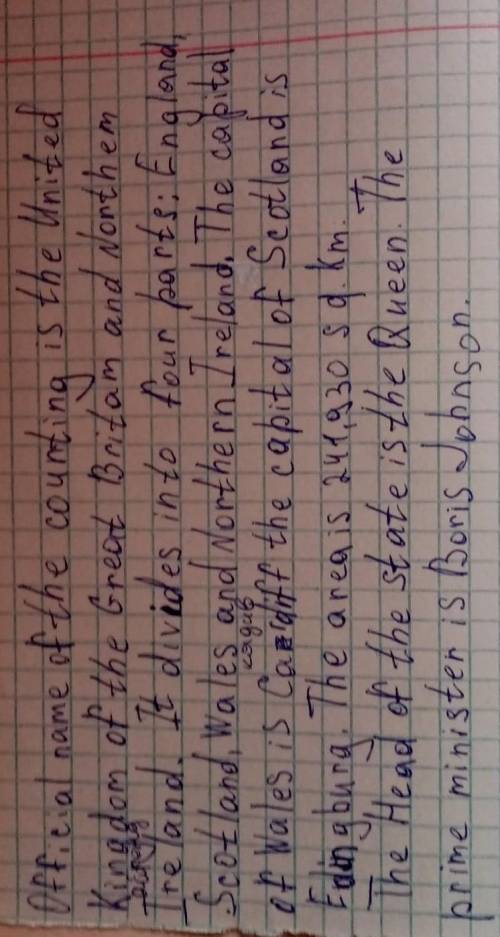 Official name of the counting is the United
Kingdom of the Great Britam and Northern
Ireland. It divides into four parts: England,
Scotland, Wales and Northern Ireland. The capital
of Wales is Cardiff the capital of Scotland is
Edingburg. The area is 241,930 s q. km.
The Head of the state is the Queen. The
prime minister is Boris Johnson.